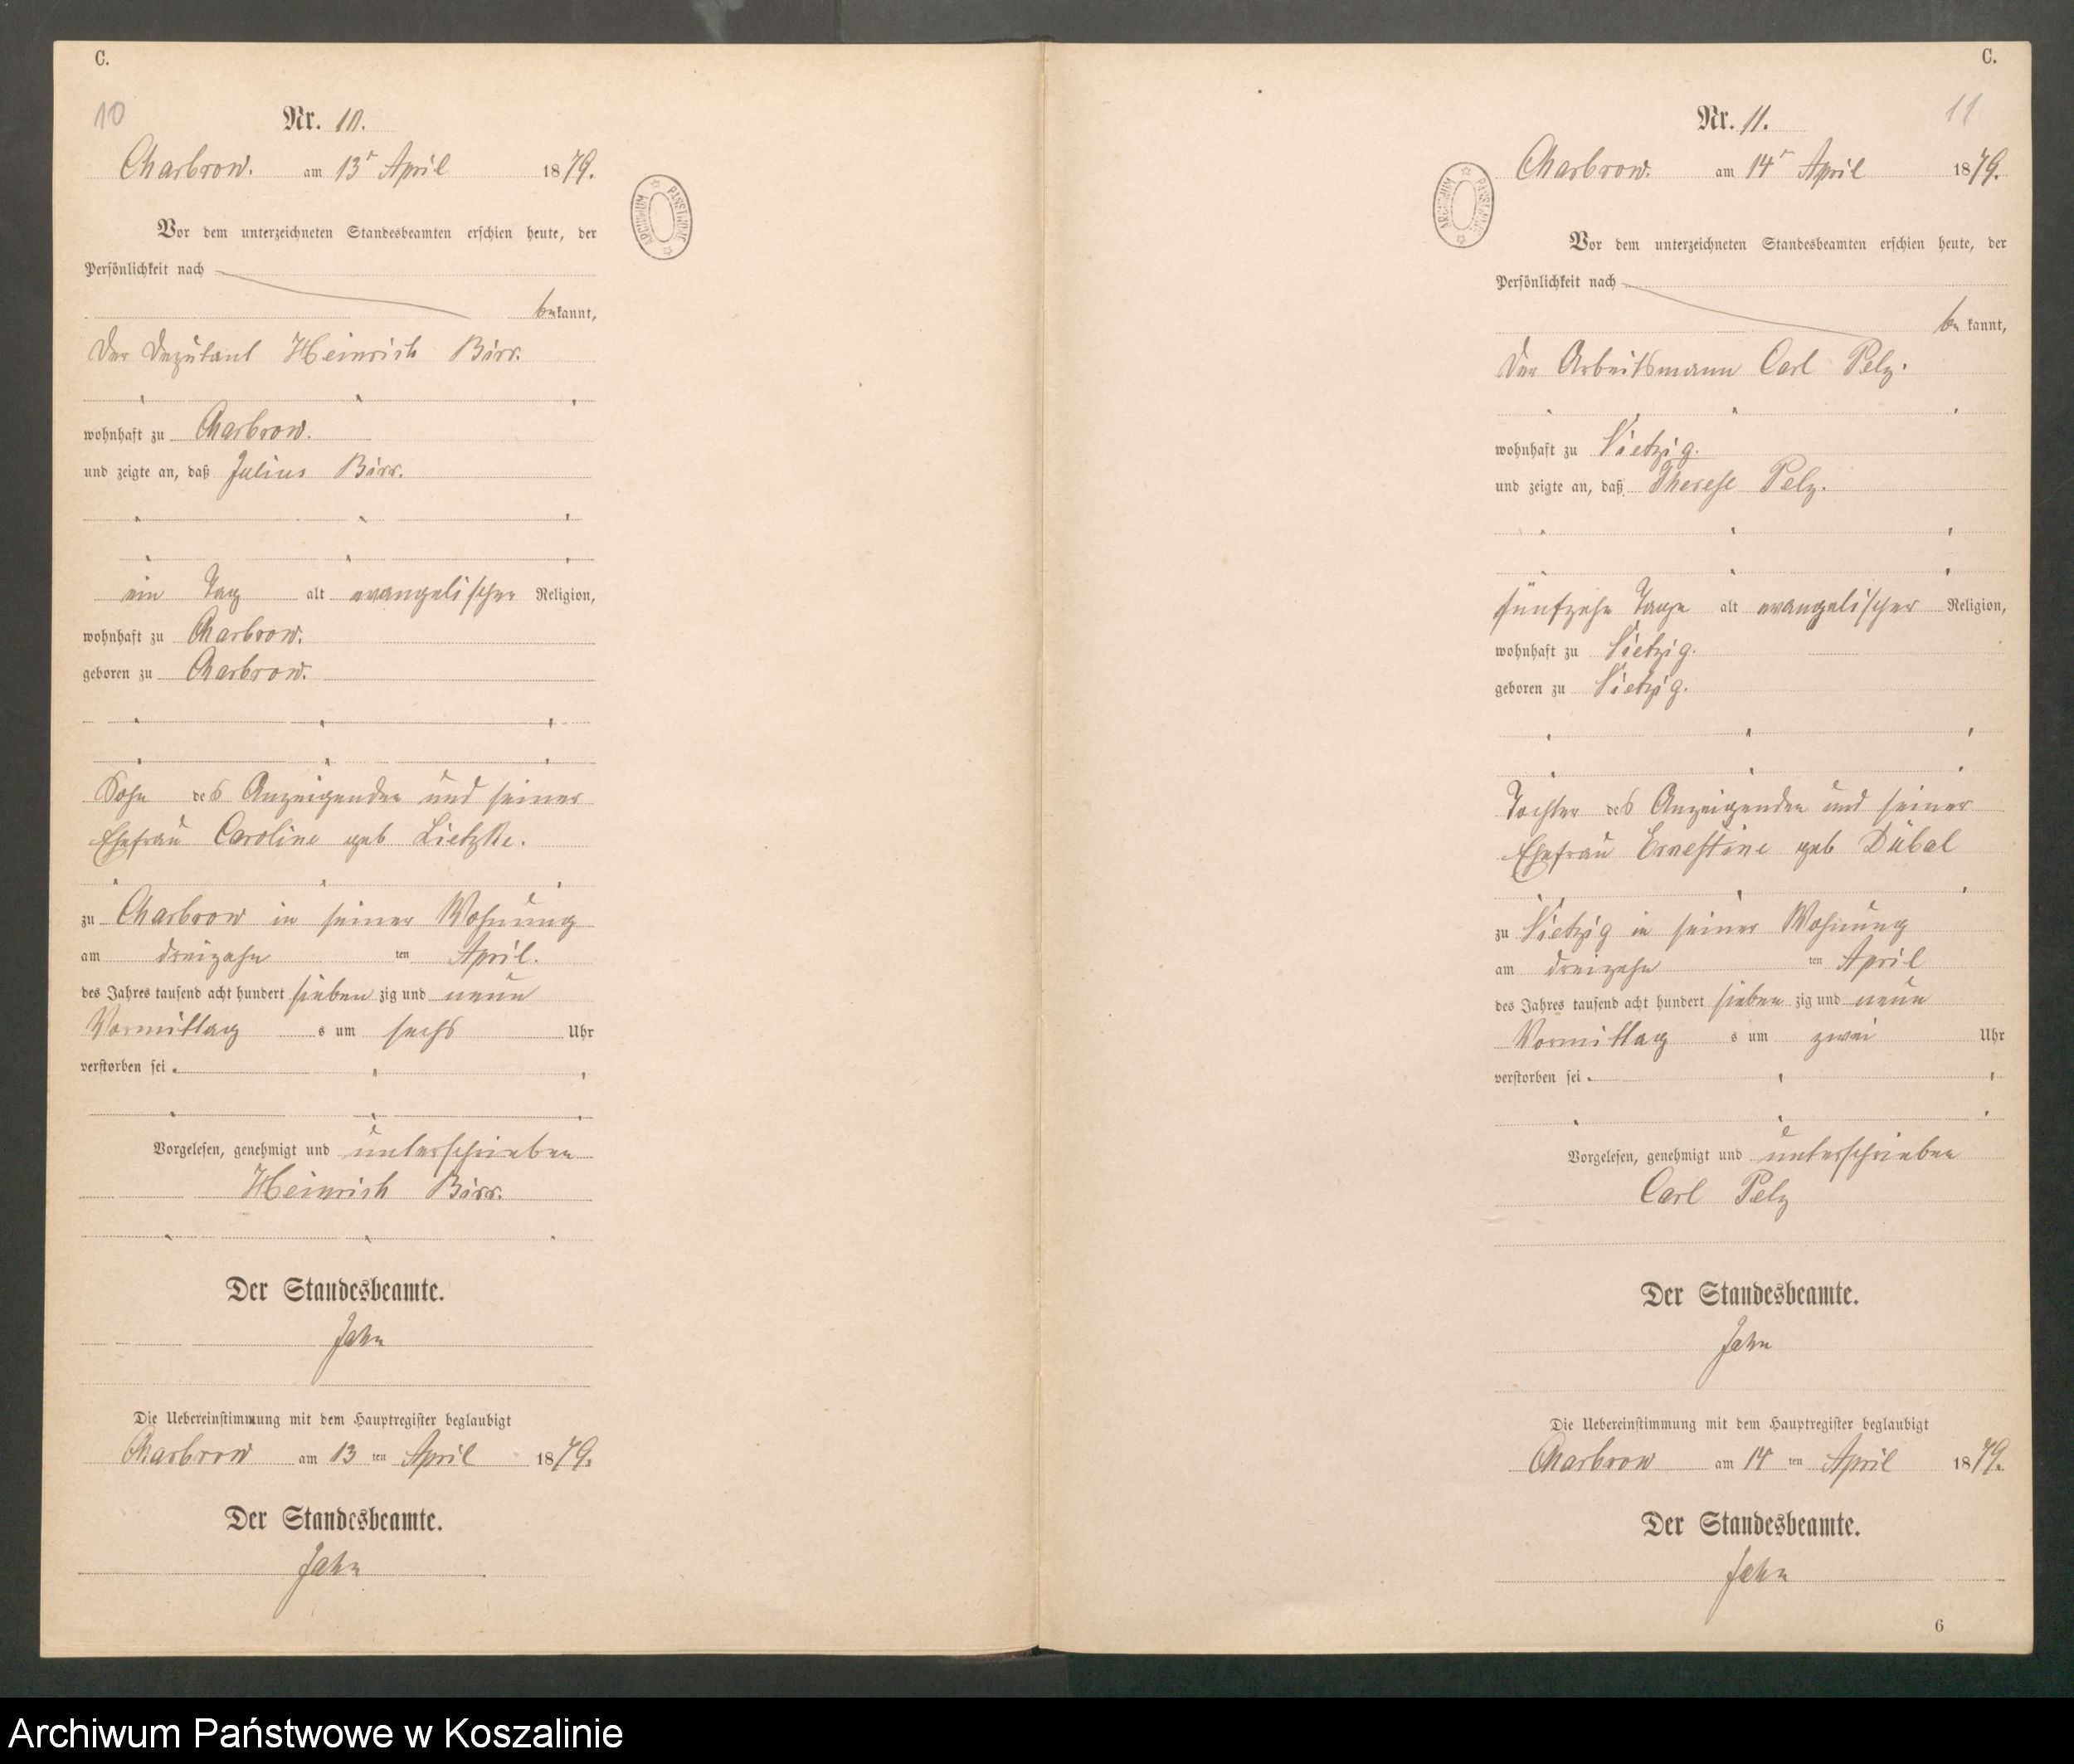 C.
10
Nr. 10.
Charbrow. am 13r April 1879.
Vor dem unterzeichneten Standesbeamten erschien heute, der
Persönlichkeit nach
bekannt,
Der Deputant Heinrich Birr.
wohnhaft zu Charbrow.
und zeigte an, daß Julius Birr.
ein Tag alt evangelischer Religion,
wohnhaft zu Charbrow.
geboren zu Charbrow.
Sohn des Anzeigenden und seiner
Ehefrau Caroline geb Lietzke.
zu Charbrow in seiner Wohnung
am dreizehn ten April.
des Jahres tausend acht hundert siebenzig und neun
Vormittags um sechs Uhr
verstorben sei.
Vorgelesen, genehmigt und unterschrieben
Heinrich Birr.
Der Standesbeamte.
Jahn
Die Uebereinstimmung mit dem Hauptregister beglaubigt
Charbrow am 13 ten April 1879.
Der Standesbeamte.
Jahn
ARCHIWUM PAŃSTWOWE
C.
11
Nr. 11.
Charbrow. am 14r April 1879.
Vor dem unterzeichneten Standesbeamten erschien heute, der
Persönlichkeit nach
bekannt,
Der Arbeitsmann Carl Pelz.
wohnhaft zu Vietzig.
und zeigte an, daß Therese Pelz.
fünfzehn Tage alt evangelischer Religion,
wohnhaft zu Vietzig.
geboren zu Vietzig.
Tochter des Anzeigenden und seiner
Ehefrau Ernestine geb Dubal
zu Vietzig in seiner Wohnung
am dreizehn ten April
des Jahres tausend acht hundert siebenzig und neun
Vormittags um zwei Uhr
verstorben sei.
Vorgelesen, genehmigt und unterschrieben
Carl Pelz
Der Standesbeamte.
Jahn
Die Uebereinstimmung mit dem Hauptregister beglaubigt
Charbrow am 14 ten April 1879.
Der Standesbeamte.
Jahn
6
ARCHIWUM PAŃSTWOWE
Archiwum Państwowe w Koszalinie